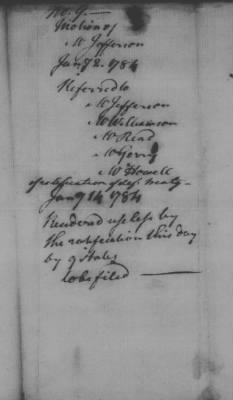 No. 9—
Motion of
Mr Jefferson
Jany 2. 1784
Referred to
Mr Jefferson
Mr Williamson
Mr Read
Mr Gerry
Mr Howell
ratification of def. treaty—
Jany 14 1784
Rendered useless by
the ratification this day
by 9 States
to be filed —